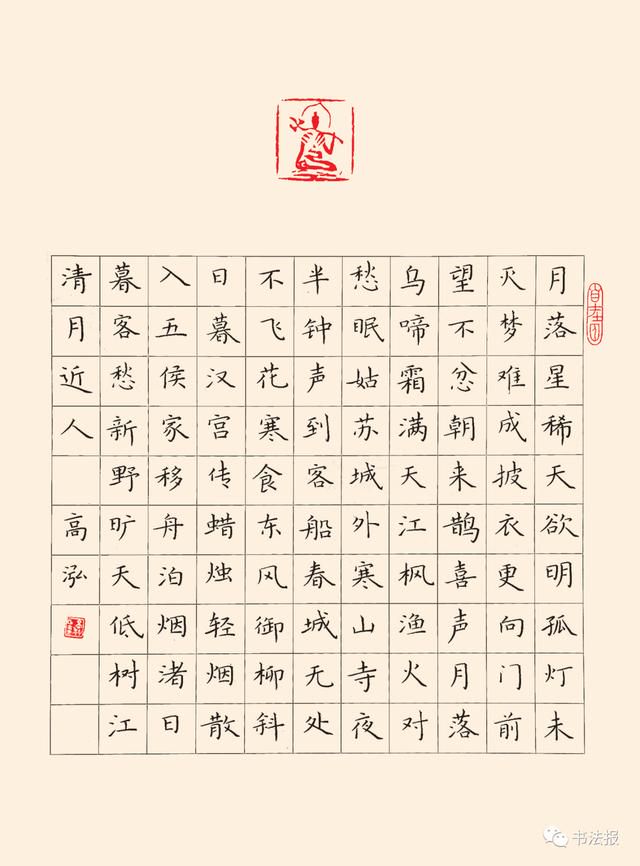 月落星稀天欲明孤灯未
灭梦难成披衣更向门前
望不忿朝来鹊喜声月落
乌啼霜满天江枫渔火对
愁眠姑苏城外寒山寺夜
半钟声到客船春城无处
不飞花寒食东风御柳斜
日暮汉宫传蜡烛轻烟散
入五侯家移舟泊烟渚日
暮客愁新野旷天低树江
清月近人 高泓
书法报